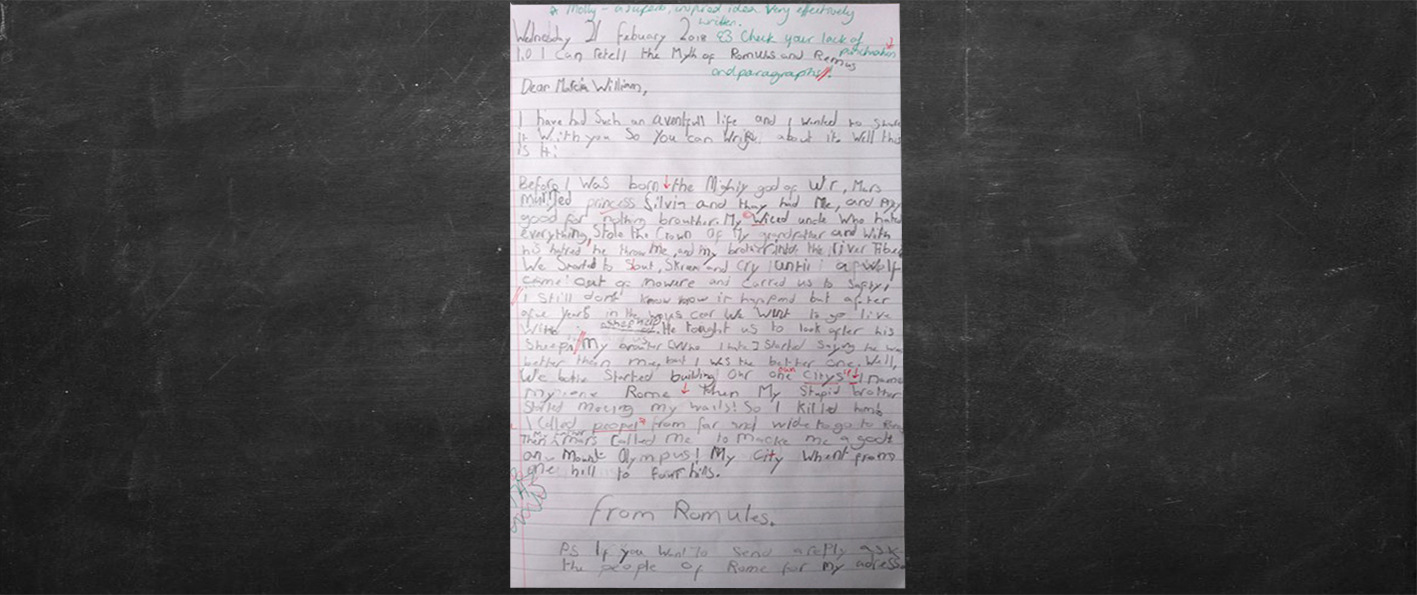 * Molly - a superb, inspired idea. Very effectively
written.
Wednesday 21 Febuary 2018 Check your lack of
punctuation
L.O I can retell the Myth of Romulus and Remus
and paragraphs //.
Dear Marcia William,
I have had such an aventfull life and I wanted to share
it with you So You can write about it. Well this
is it:
Before I was born the Mighty god of Wr, Mars
princess Silvia and thay had Me, and my
good for nothing brouther. My Wiced uncle who hated
everything, Stole the Crown Of My grandfather and with
his hatred, he throw me, and my brother into the river Tiber
We Started to Shout, Skream and Cry until a Wolf
came out of nowere and carred us to Safty,
I still dont know how it happend but after
five years in the We Went to go live
With a sheepherd. He tought us to look after his
Sheep. // My brouther (Who I hate) Started Saying he was
better then me, but I was the better one. Well,
We bothe Started building Our one own Citys I named
my one Rome then My Stupid brother
Started moving my walls! So I killed
I Called peopel from far and wide to go to Rome
Then Mars Called me to macke me a god
on Mount Olympus! My City Whent from
one hill to four hills.
from Romules.
PS If you want to send a reply ask
the people of Rome for my adress